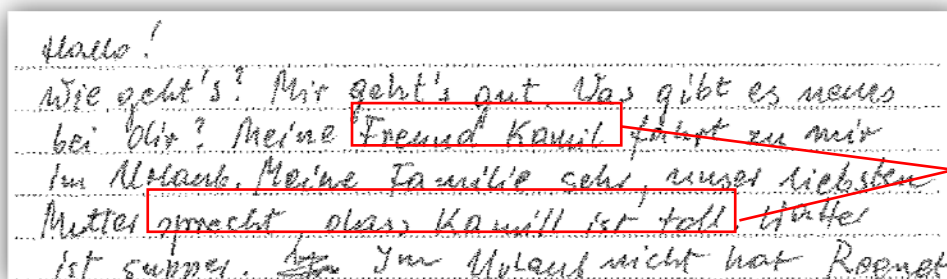 Hallo!
Wie geht's? Mir geht's gut. Was gibt es neues
bei Dir? Meine Freund Kamil fährt zu mir
im Urlaub. Meine Familie sehr, unser liebsten
Mutter sprecht, dass Kamill ist toll.
ist supper. Im Urlaub nicht hat